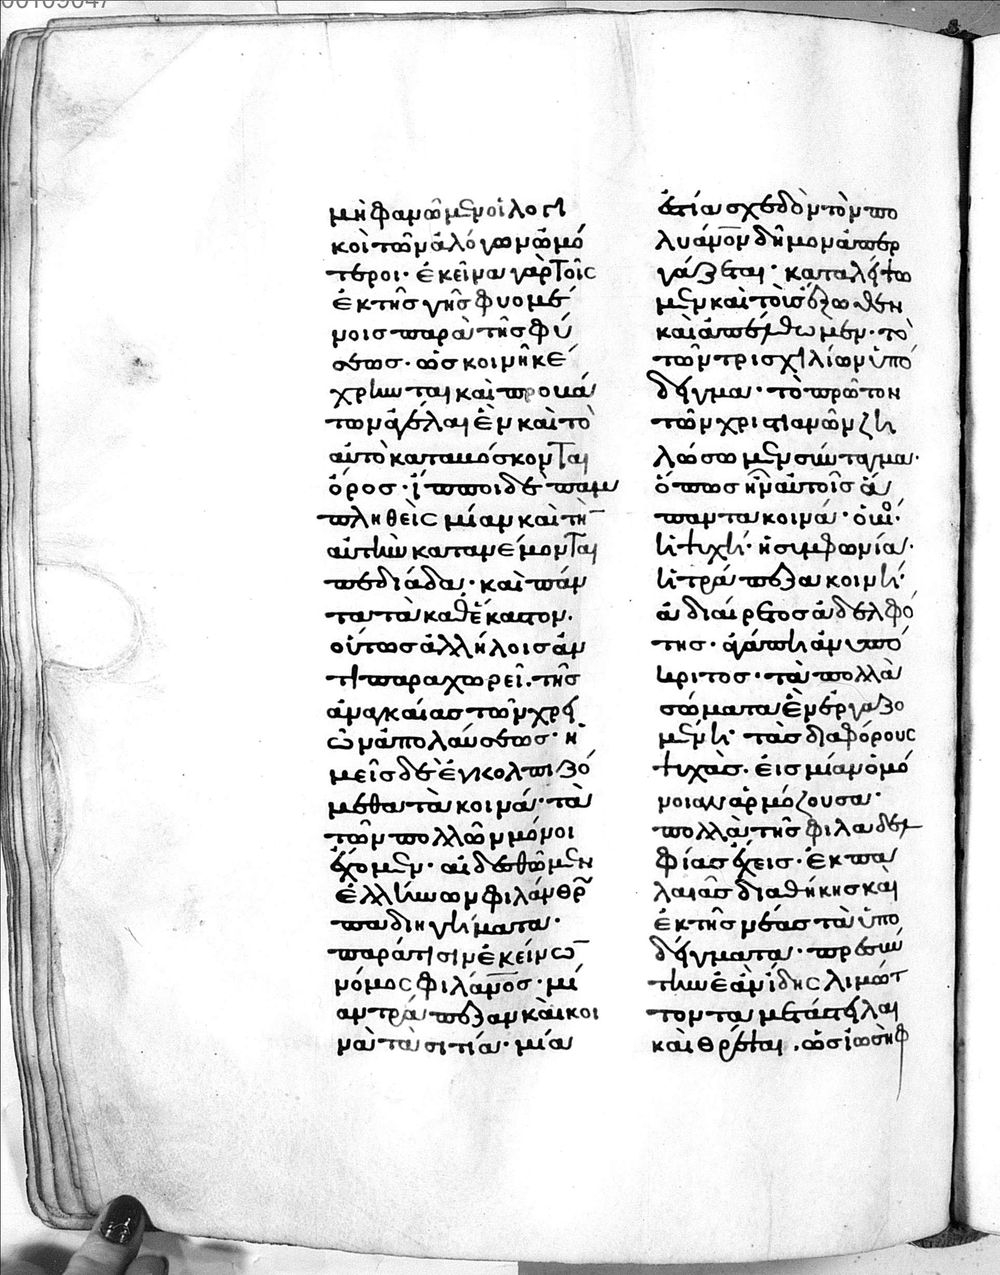 μὴ φανῶμεν οἱ λογι
κοὶ τῶν ἀλόγων ὠμό
τεροι· ἐκεῖνα γὰρ τοῖς
ἐκ τῆς γῆς φυομέ
νοις παρὰ τῆς φύ
σεως· ὡς κοινῆ κέ
χρηνται καὶ προμά
των ἀγέλαι ἓν καὶ τὸ
αὐτὸ καταβόσκονται
ὄρος· ἵπποι δὲ παμ
πληθεὶς μίαν καὶ τὴ
αὐτὴν κατανέμονται
πεδιάδα· καὶ πάν
τα τὰ καθέκαστον·
οὕτως ἀλλήλοις ἀν
τιπαραχωρεῖ· τῆς
ἀναγκαίας τῶν χρει
ῶν ἀπολαύσεως· ἡ
μεῖς δὲ ἐγκολπιζό
μεθα τὰ κοινά· τὰ
τῶν πολλῶν μόνοι
ἔχομεν· αἰδεσθῶμεν
ἑλλήνων φιλάνθρ
πα διηγήματα·
παρά τισιν ἐκείνω
νόμος φιλάνος· μί
αν τράπεζαν καὶ κοι
νὰ τὰ σιτία· μία
ἑστία σχεδὸν τὸν πο
λυάνον δῆμον ἀπερ
γάζεται· καταλείπω
μεν καὶ τοὶς ἔξωθεν
καὶ ἀπέλθωμεν· τὸ
τῶν τρισχιλίων ὑπό
δειγμα· τὸ πρῶτον
τῶν χριστιανῶν ζη
λώσωμεν σύνταγμα·
ὅπως ἦν αὐτοῖς ἅ
παντα κοινά· ὁ βίος·
ἡ ψυχή· ἡ συμφωνία·
ἡ τράπεζα κοινή·
ἀδιαίρετος ἀδελφό
της· ἀγάπη ἀνυπό
κριτος· τὰ πολλὰ
σώματα ἓν ἐργαζο
μένη· τὰς διαφόρους
ψυχὰς· εἰς μίαν ὁμό
νοιαν ἁρμόζουσα·
πολλὰ τῆς φιλαδελ
φίας ἔχεις· ἐκ πα
λαιᾶς διαθήκης καὶ
ἐκ τῆς νέας τὰ ὑπο
δείγματα· πρεσβύ
την ἐὰν ἴδης λιμώτ
τοντα μετάστειλαι
καὶ θρέψαι· ὡς ἰωσὴφ